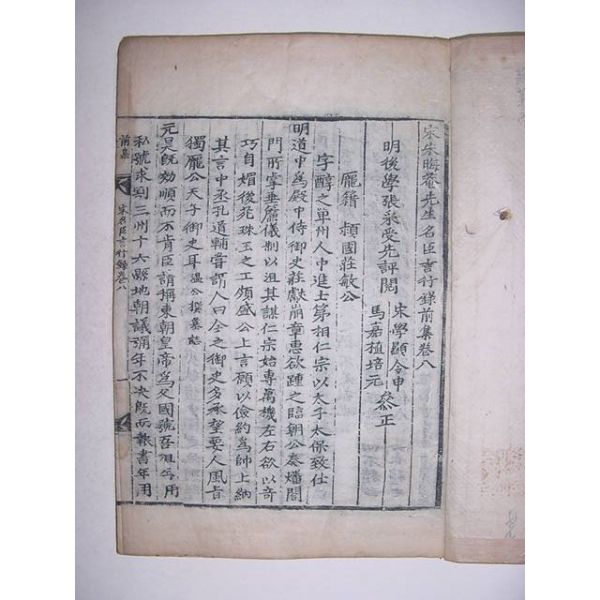 宋朱晦菴先生名臣言行錄前集卷八
明後學張采受先評閱
宋學顯令申
馬嘉植培元
叅正
龐籍 潁國莊敏公
字醇之單州人中進士第相仁宗以太子太保致仕
明道中為殿中侍御史莊獻崩章惠欲踵之臨朝公奏燔閤
門所掌垂簾儀制以沮其謀仁宗始專萬機左右欲以奇
巧自媚後苑珠玉之工頗盛公上言願以儉約為帥上納
其言中丞孔道輔嘗謂人曰今之御史多承望要人風旨
獨龐公天子御史耳 溫公撰墓誌
元昊既効順而不肯臣請稱東朝皇帝為父國號吾祖年用
私號求割三州十六縣地朝議彌年不決既而報書年用
前集
宋名臣言行錄卷八
一